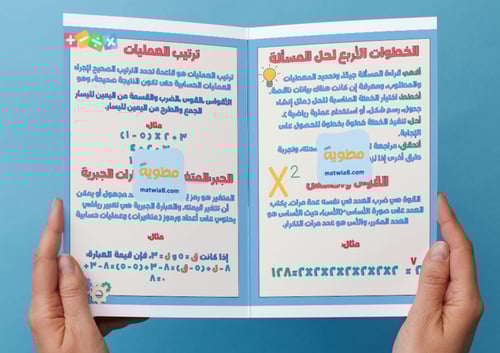 الخطوات الأربع لحل المسألة
أفهم: قراءة المسألة جيدًا، وتحديد المعطيات
والمطلوب، ومعرفة إن كانت هناك بيانات ناقصة.
أخطط: اختيار الخطة المناسبة للحل (مثل إنشاء
جدول، رسم شكل، أو استخدام عملية رياضية).
أحل: تنفيذ الخطة خطوة بخطوة للحصول على
الإجابة.
أتحقق: مراجعة وتجربة
طرق أخرى إذا
مطوية
matwia8.com
القوى
X²
القوة هي ضرب العدد في نفسه عدة مرات، يكتب
العدد على صورة الأساس^(الأس)، حيث الأساس هو
العدد المكرر، والأس هو عدد مرات التكرار.
مثال:
٢^٧ = ٢×٢×٢×٢×٢×٢×٢=١٢٨
ترتيب العمليات
ترتيب العمليات هو قاعدة تحدد الترتيب الصحيح لإجراء
العمليات الحسابية حتى تكون النتيجة صحيحة، وهو
الأقواس، القوى، الضرب والقسمة من اليمين لليسار
الجمع والطرح من اليمين لليسار.
مثال:
٣ + ٢ × (٥ − ١)
مطوية
matwia8.com
الجبر: المتغيرات والعبارات الجبرية
المتغير هو رمز مجهول أو يمكن
أن تتغير قيمته. والعبارة الجبرية هي تعبير رياضي
يحتوي على أعداد ورموز (متغيرات) وعمليات حسابية
مثال:
إذا كانت ق = ٥ و ل = ٣، فإن قيمة العبارة:
٨ - ل + (ق-٥)=٨-٣+(٥-٥)=٨-٣+
٠=٨